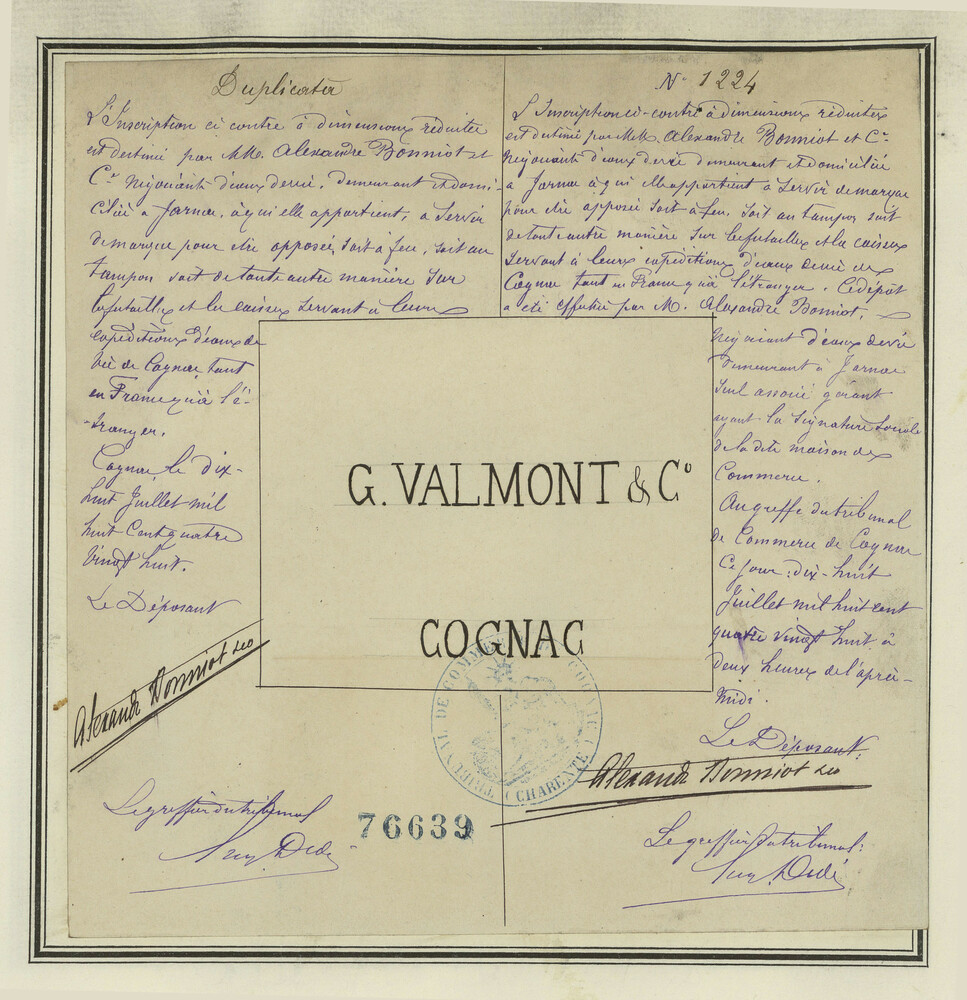 Duplicata
L'Inscription ci contre à dimensions réduites
est destiné par MM. Alexandre Bonniot et
Cie Négociants d'eaux de vie, demeurant et domi-
cilié a Jarnac, à qui elle appartient, a Servir
de marque pour être apposée, soit à feu, soit au
tampon soit de toute autre manière sur
les futailles et les caisses servant à leurs
expéditions d'eaux de
vie de Cognac tant
en France qu'à l'é-
-tranger.
Cognac le dix-
huit Juillet mil
huit cent quatre
vingt huit.
Le Déposant
Alexandre Bonniot &co
Le greffier du tribunal
Dedé
No 1224
L'Inscription ci-contre à dimensions réduites
est destiné par MM. Alexandre Bonniot et Cie
Négociants d'eaux de vie demeurant et domiciliés
a Jarnac à qui elle appartient à servir de marque
pour être apposée soit à feu, soit au tampon soit
de toute autre manière sur les futailles et les caisses
servant à leurs expéditions d'eaux de vie de
Cognac tant en France qu'à l'étranger. Ce dépôt
a été effectué par M. Alexandre Bonniot,
Négociant d'eaux de vie
demeurant à Jarnac
seul associé gérant
ayant la signature sociale
de la dite maison de
Commerce.
Au greffe du tribunal
de Commerce de Cognac
Ce jour : dix-huit
Juillet mil huit cent
quatre vingt huit à
deux heures de l'après-
midi.
Le Déposant.
Alexandre Bonniot &co
Le greffier du tribunal:
Dedé
G. VALMONT & Co
COGNAC
TRIBUNAL DE COMMERCE DE COGNAC
(CHARENTE)
76639